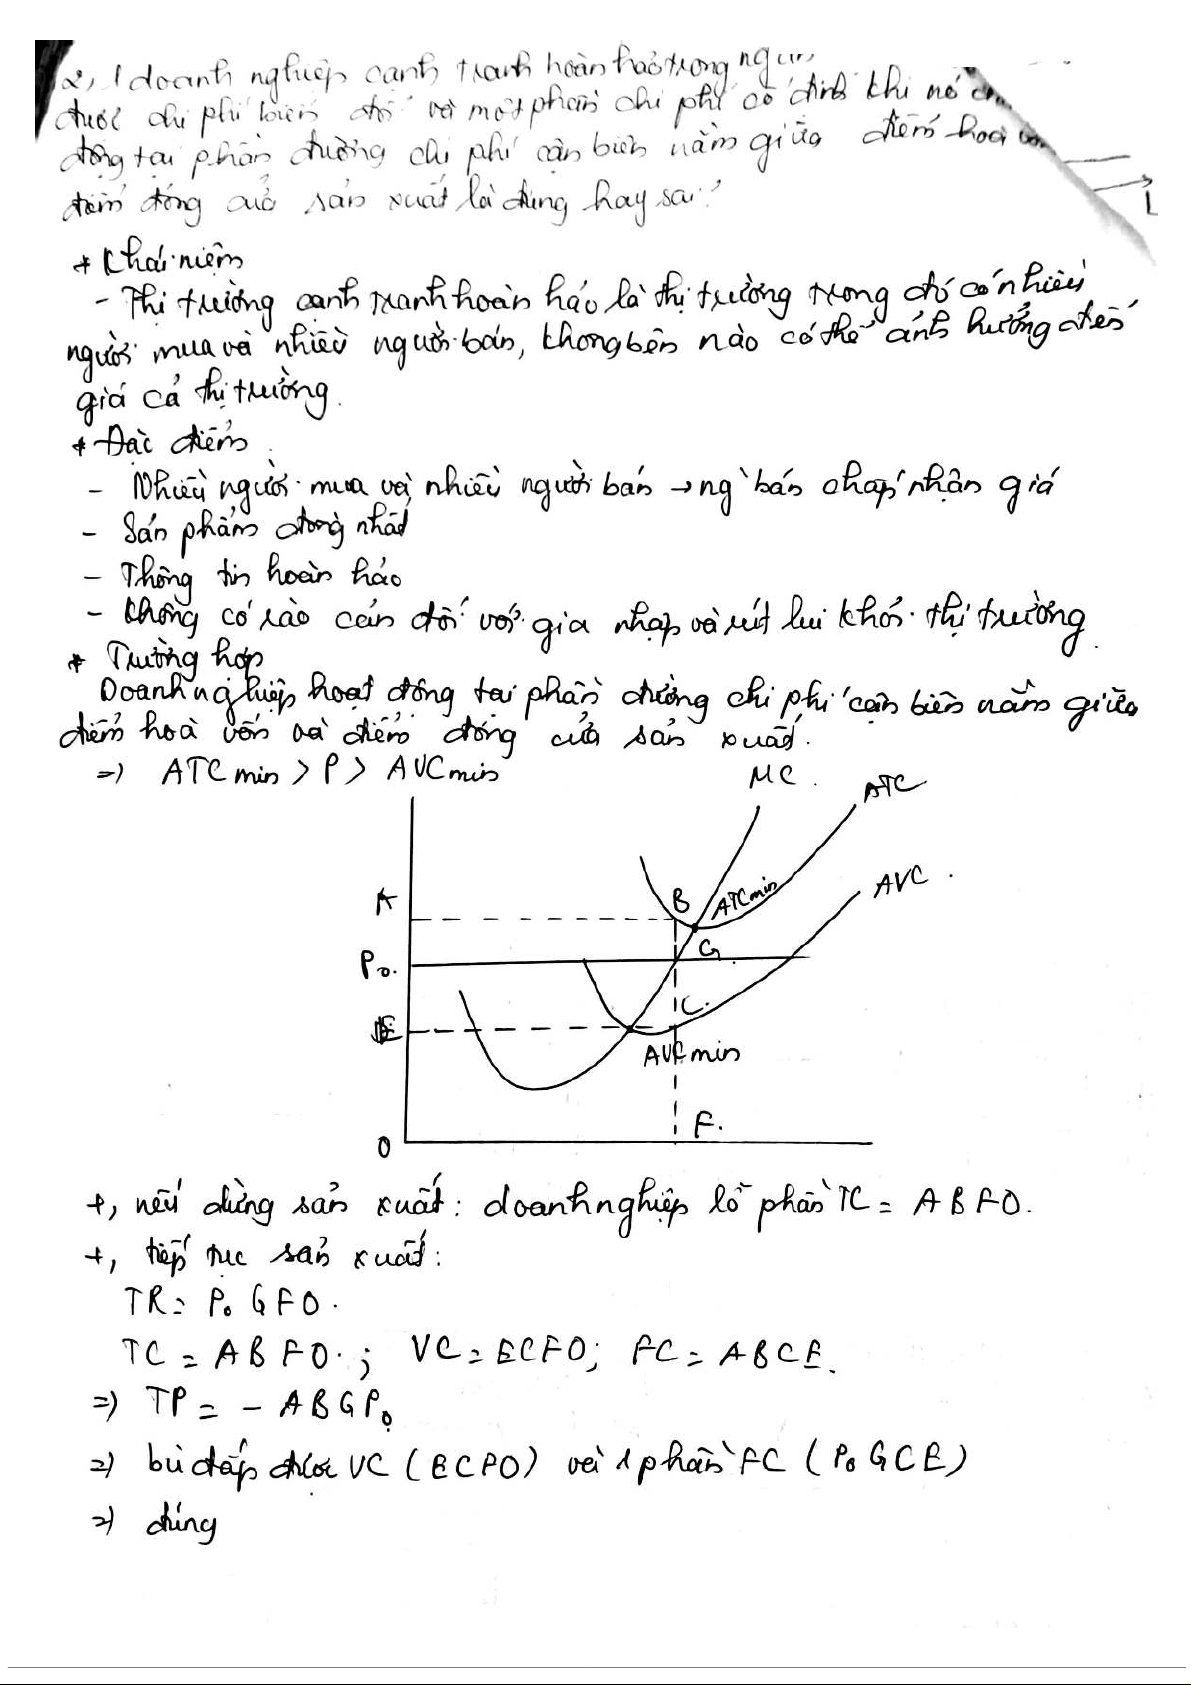 2, 1 doanh nghiệp cạnh tranh hoàn hảo trong
được chi phí biến đổi và một phần chi phí cố định khi nó
động tại phần đường chi phí cận biên nằm giữa điểm hoà
điểm đóng cửa sản xuất là đúng hay sai?
L
+ Khái niệm
- Thị trường cạnh tranh hoàn hảo là thị trường trong đó có nhiều
người mua và nhiều người bán, không bên nào có thể ảnh hưởng đến
giá cả thị trường.
+ Đặc điểm.
- Nhiều người mua và nhiều người bán → ng` bán chấp nhận giá
- Sản phẩm đồng nhất
- Thông tin hoàn hảo
- Không có rào cản đối với gia nhập và rút lui khỏi thị trường.
* Trường hợp
Doanh nghiệp hoạt động tại phần đường chi phí cận biên nằm giữa
điểm hoà vốn và điểm đóng cửa sản xuất.
=) ATC min > P > AVC min
MC
ATC
AVC
A
B
ATC min
P₀
G
E
C
AVC min
O
F.
+, nếu dừng sản xuất: doanh nghiệp lỗ phần TC = ABFO.
+, tiếp tục sản xuất:
TR = P₀GFO.
TC = ABFO; VC = ECFO; FC = ABCE.
=) TP = - ABGP₀
=) bù đắp được VC (ECFO) và 1 phần FC (P₀GCE)
=) đúng